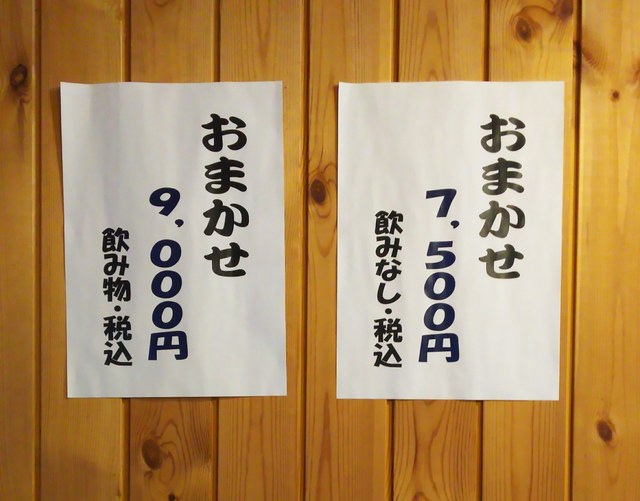 おまかせ
7,500円
飲みなし・税込
おまかせ
9,000円
飲み物・税込